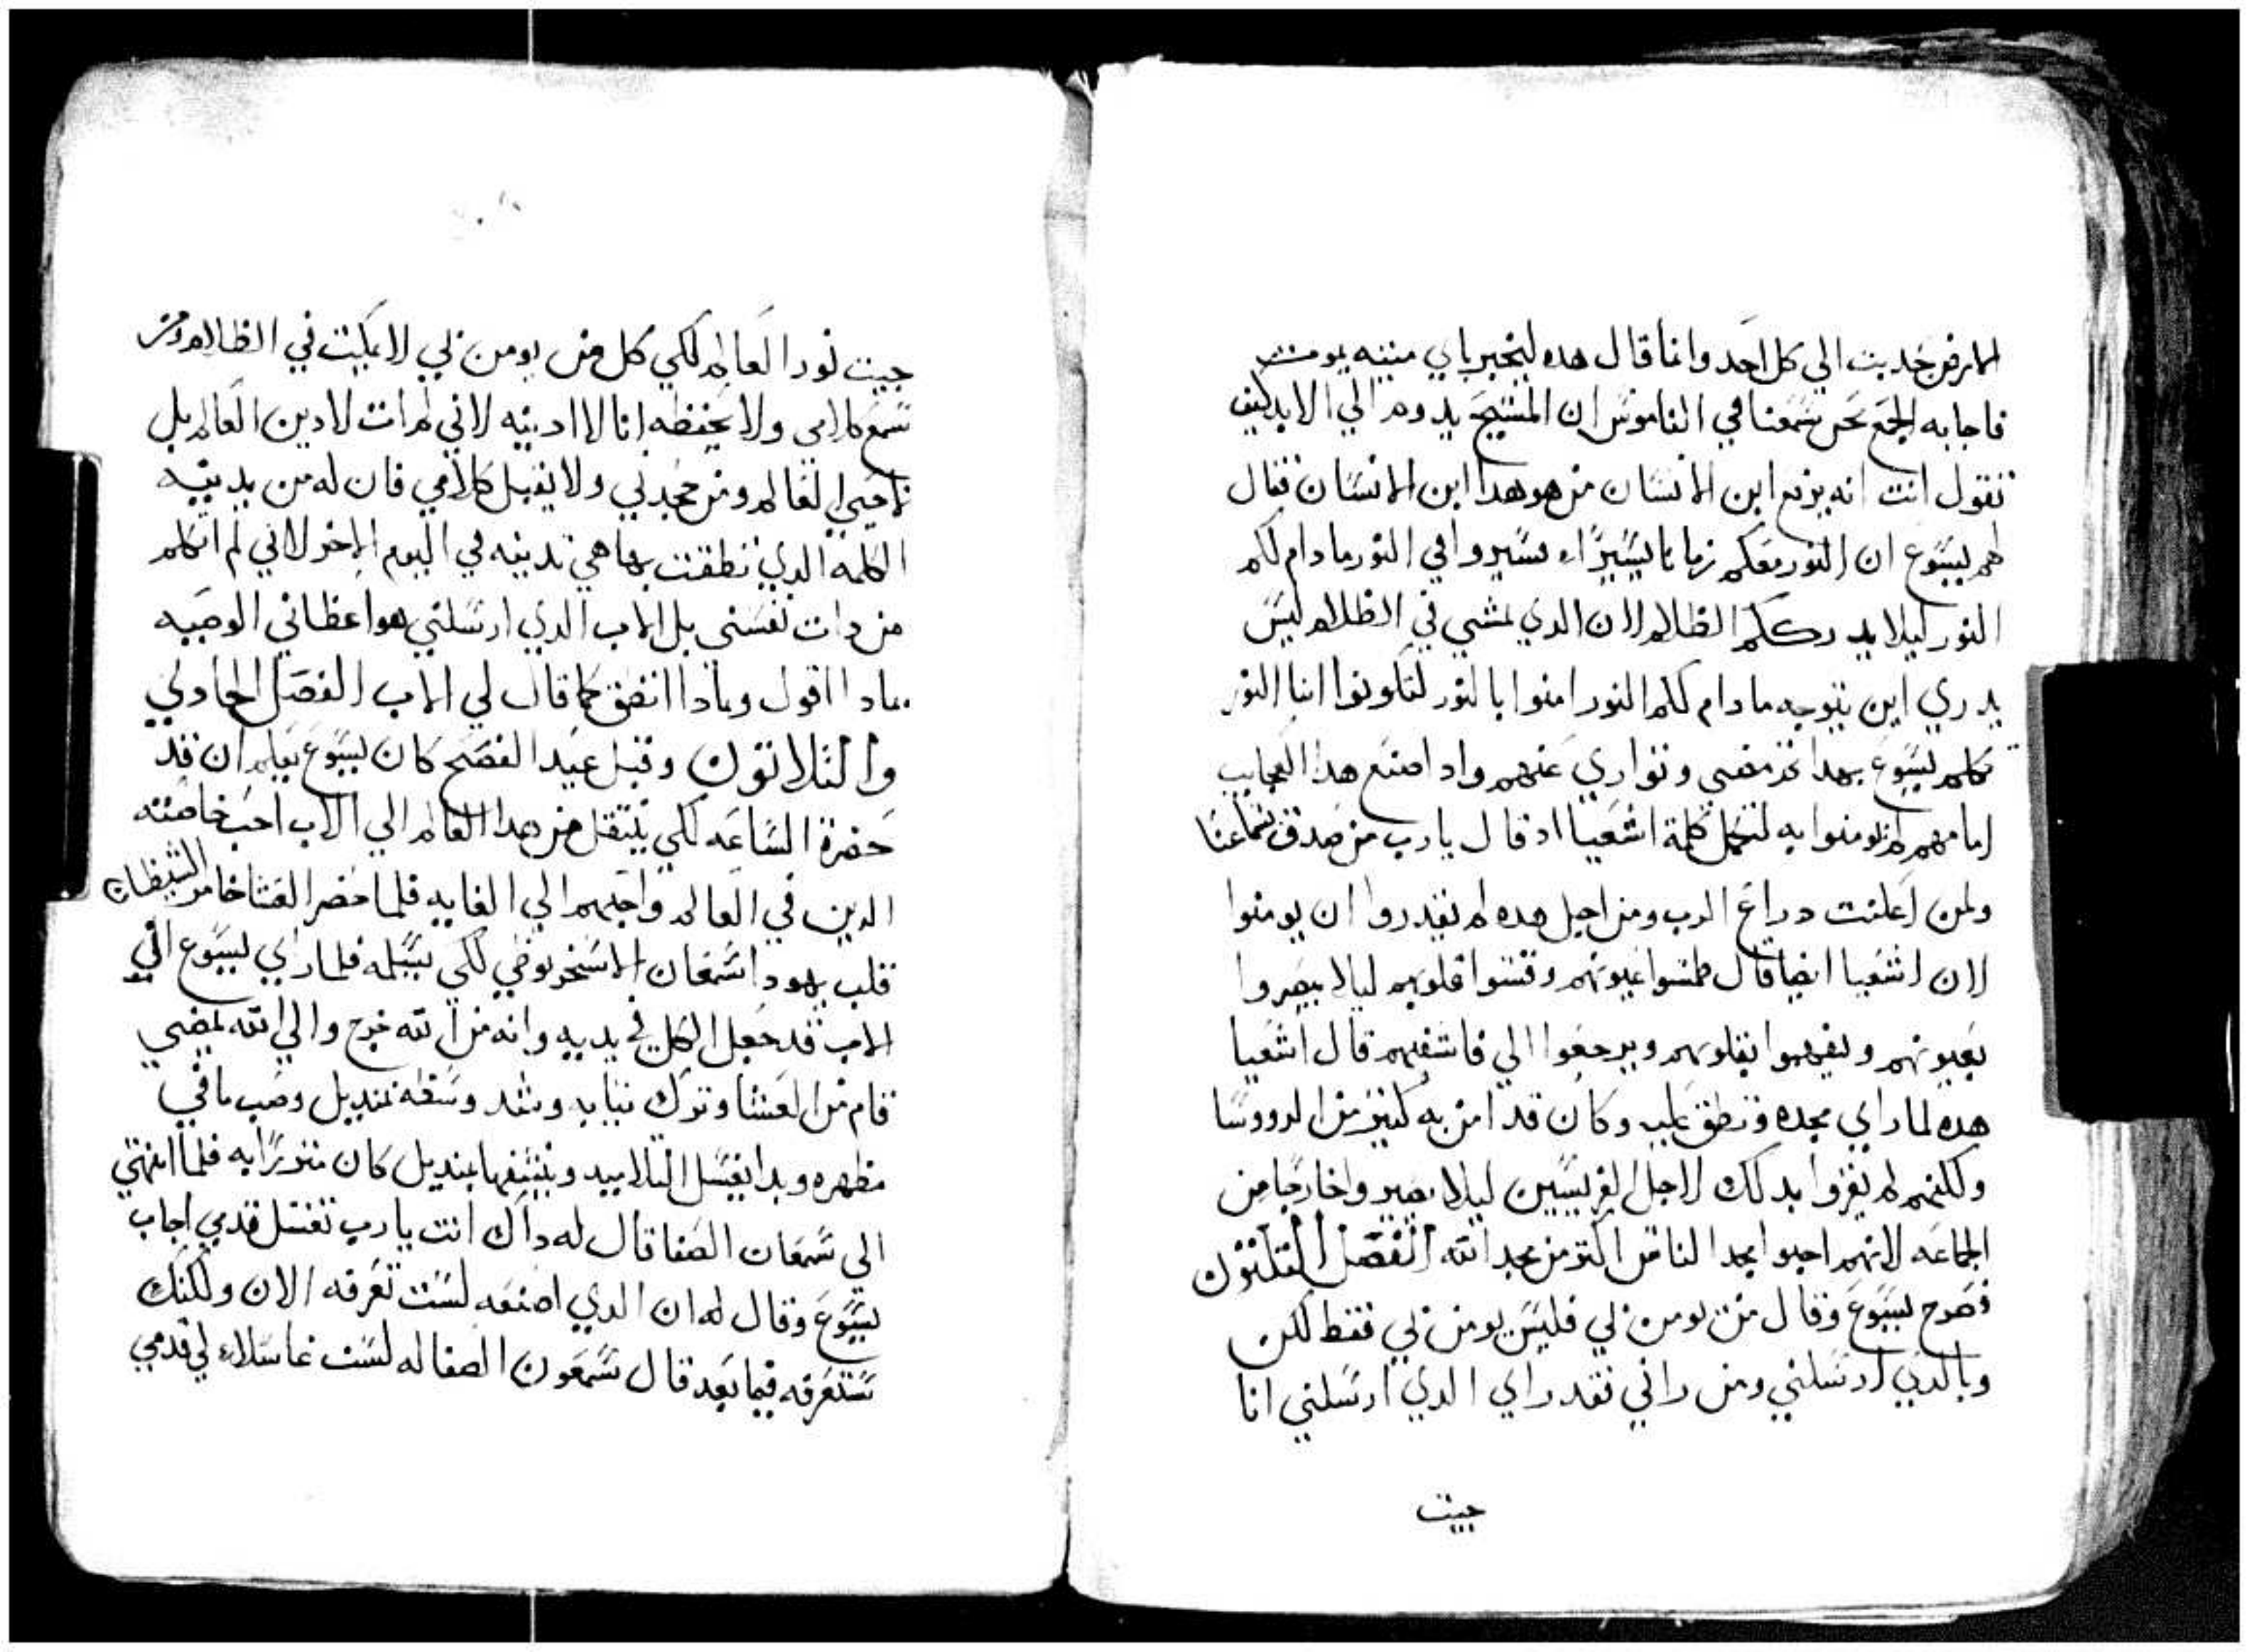 الارض جديت الي كل احد وانما قال هده ليخبر باي ميته يموت
فاجابه الجمع نحن سمعنا في الناموس ان المسيح يدوم الي الابد كيف
تقول انت انه يرفع ابن الانسان من هو هدا ابن الانسان فقال
لهم يسوع ان النور معكم زمانا يسيرا سيروا في النور ما دام لكم
النور ليلا يدرككم الظلام لان الدي يمشي في الظلام ليس
يدري اين يتوجه ما دام لكم النور امنوا بالنور لتكونوا ابنا النور
تكلم يسوع بهدا ثم مضي وتواري عنهم واد اصنع هدا العجايب
امامهم لم يومنوا به لتكمل كلمة اشعيا اد قال يارب من صدق سماعنا
ولمن اعلنت دراع الرب ومن اجل هده لم يقدروا ان يومنوا
لان اشعيا ايضا قال طمسوا عيونهم وقسوا قلوبهم ليلا يبصروا
بعيونهم ويفهموا بقلوبهم ويرجعوا الي فاشفيهم قال اشعيا
هده لما راي مجده ونطق عليه وكان قد امن به كثير من الرووسا
ولكنهم لم يقروا بدلك لاجل الفريسيين ليلا يصيروا خارجا من
الجماعه لانهم احبوا مجد الناس اكثر من مجد الله الفصل الثلثون
فصرخ يسوع وقال من يومن بي فليس يومن بي فقط لكن
وبالدي ارسلني ومن راني فقد راي الدي ارسلني انا
جيت
جيت نورا لعالم لكي كل من يومن بي لا يمكث في الظلام ومن
سمع كلامي ولا يحفظه انا لا ادينه لاني لم ات لادين العالم بل
لاحيي العالم ومن جحدني ولا يقبل كلامي فان له من يدينه
الكلمه الدي نطقت بها هي تدينه في اليوم الاخر لاني لم اتكلم
من دات نفسي بل الاب الدي ارسلني هو اعطاني الوصيه
بمادا اقول وبمادا انطق كما قال لي الاب الفصل الحادي
والثلاثون وقبل عيد الفصح كان يسوع يعلم ان قد
حضرة الساعه لكي ينتقل من هدا العالم الي الاب احب خاصته
الدين في العالم واحبهم الي الغايه فلما حضر العشا خامر الشيطان
قلب يهودا شمعان الاسخريوطي لكي يسلمه فلما راي يسوع ان
الاب قد جعل الكل في يديه وانه من الله خرج والي الله يمضي
قام من العشا وترك ثيابه وشد وسطه بمنديل وصب ما في
مطهره وبدا يغسل التلاميد وينشفها بمنديل كان متزرا به فلما انتهي
الي شمعان الصفا قال له داك انت يارب تغسل قدمي اجاب
يسوع وقال له ان الدي اصنعه لست تعرفه الان ولكنك
ستعرفه فيما بعد قال شمعون الصفا له لست غاسلا لي قدمي